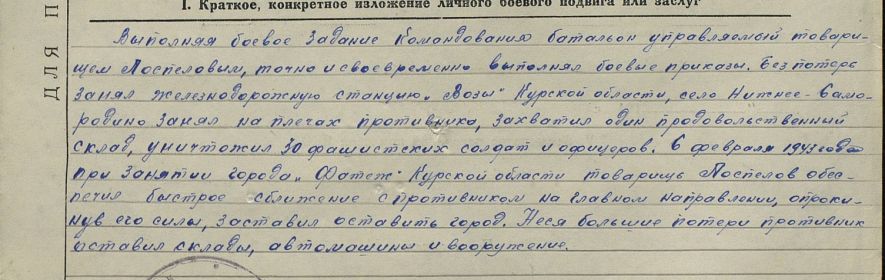 I. Краткое, конкретное изложение личного боевого подвига или заслуг
ДЛЯ П
Выполняя боевое задание Командования батальон управляемый товари-
щем Поспеловым, точно и своевременно выполнял боевые приказы. Без потерь
занял железнодорожную станцию „Возы" Курской области, село Нижнее-Само-
родино занял на плечах противника, захватил один продовольственный
склад, уничтожил 30 фашистских солдат и офицеров. 6 февраля 1943 года
при занятии города „Фатеж" Курской области товарищ Поспелов обес-
печил быстрое сближение с противником на главном направлении, опроки-
нув его силы, заставил оставить город. Неся большие потери противник
оставил склады, автомашины и вооружение.